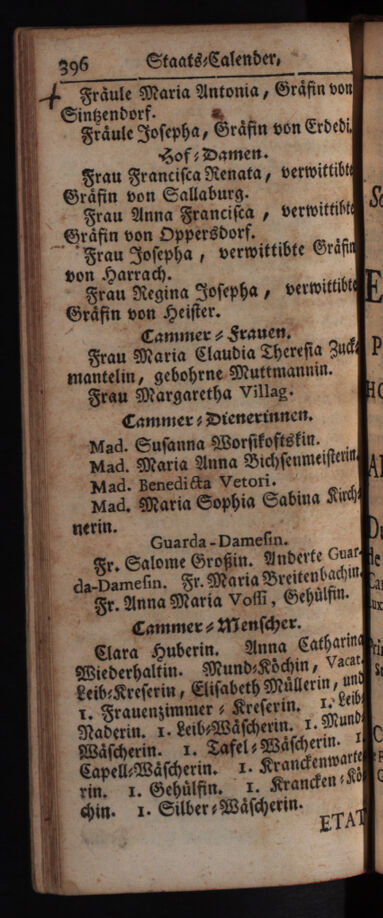 396 Staats-Calender,
Fräule Maria Antonia, Gräfin von
Sintzendorf.
Fräule Josepha, Gräfin von Erdedi.
Hof-Damen.
Frau Francisca Renata, verwittibte
Gräfin von Sallaburg.
Frau Anna Francisca, verwittibte
Gräfin von Oppersdorf.
Frau Josepha, verwittibte Gräfin
von Harrach.
Frau Regina Josepha, verwittibte
Gräfin von Heister.
Cammer-Frauen.
Frau Maria Claudia Theresia Zuck-
mantelin, gebohrne Muttmannin.
Frau Margaretha Villag.
Cammer-Dienerinnen.
Mad. Susanna Worsikoftskin.
Mad. Maria Anna Bichsenmeisterin.
Mad. Benedicta Vetori.
Mad. Maria Sophia Sabina Kirch-
nerin.
Guarda-Damesin.
Fr. Salome Großin. Anderte Guar-
da-Damesin. Fr. Maria Breitenbachin.
Fr. Anna Maria Vossi, Gehülfin.
Cammer-Menscher.
Clara Huberin. Anna Catharina
Wiederhaltin. Mund-Köchin, Vacat.
Leib-Kreserin, Elisabeth Müllerin, und
1. Frauenzimmer-Kreserin. 1. Leib-
Naderin. 1. Leib-Wäscherin. 1. Mund-
Wäscherin. 1. Tafel-Wäscherin. 1.
Capell-Wäscherin. 1. Kranckenwarte-
rin. 1. Gehülfin. 1. Krancken-Kö-
chin. 1. Silber-Wäscherin.
ETAT